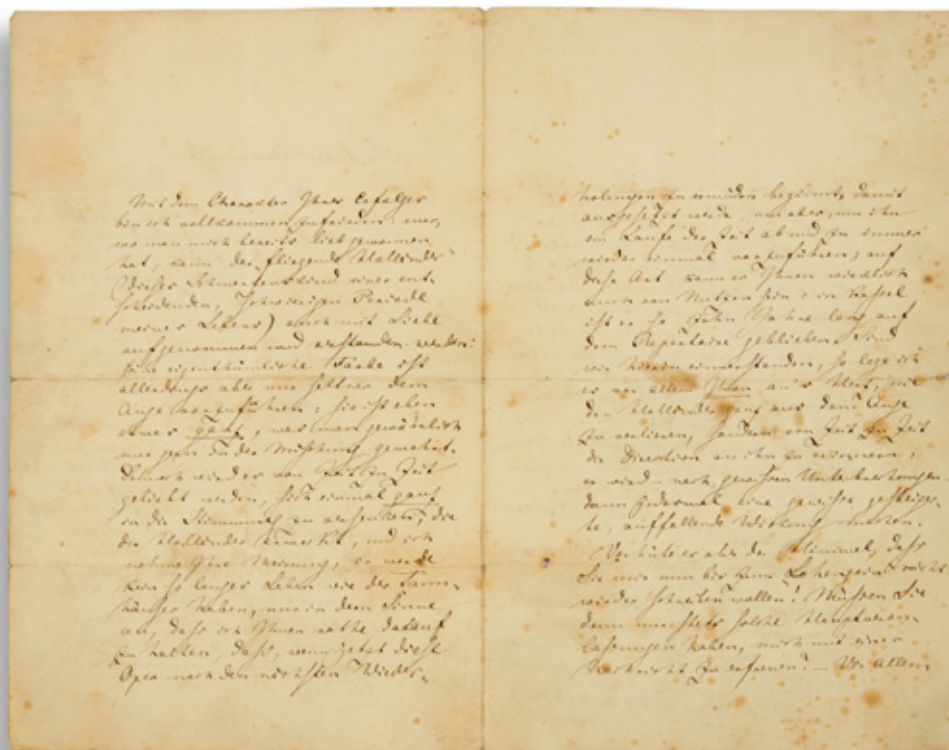 Mit dem Charakter Ihres Erfolges
bin ich vollkommen zufrieden: nur,
wo man mich bereits lieb gewonnen
hat, kann der "fliegende Holländer"
(dieses Schmerzenskind einer ent-
scheidenden, schwierigen Periode
meines Lebens) auch mit Liebe
aufgenommen und verstanden werden:
seine eigenthümliche Farbe ist
allerdings aber nur seltner dem
Auge vorzuführen: sie ist eben
etwas ganz, was man gewöhnlich
nur in der Mischung gewohnt.
Demnach wird es von Zeit zu Zeit
geliebt werden, sich einmal ganz
in die Stimmung zu versenken, die
der Holländer erweckt, und ich
nehme Ihre Meinung, er werde
kein so langes Leben wie der Tann-
häuser haben, nur in dem Sinne
an, dass ich Ihnen rathe darauf
zu halten, dass, wenn jetzt diese
Oper nach den nächsten Wieder-
holungen zu ermüden beginnt, damit
ausgesetzt werde, um aber, um ihn
im Laufe der Zeit ab und zu immer
wieder einmal vorzuführen; auf
diese Art kann er Ihnen wirklich
auch von Nutzen sein: in Kassel
ist er so zehn Jahre lang auf
dem Repertoire geblieben. Sind
wir hierin einverstanden, so lege ich
es vor allem Ihnen an's Herz, nie
den Holländer ganz aus dem Auge
zu verlieren, sondern von Zeit zu Zeit
die Direction an ihn zu erinnern:
er wird – nach gewissen Unterbrechungen
dann jedesmal eine gewisse gesteiger-
te, auffallende Wirkung machen.
Verhüte es aber der Himmel, dass
Sie mir nun bis zum Lohengrin nicht
wieder schreiben wollen! Müssen Sie
denn nur stets solche Hauptveran-
lassungen haben, mich mit einer
Nachricht zu erfreuen? – Vor allem